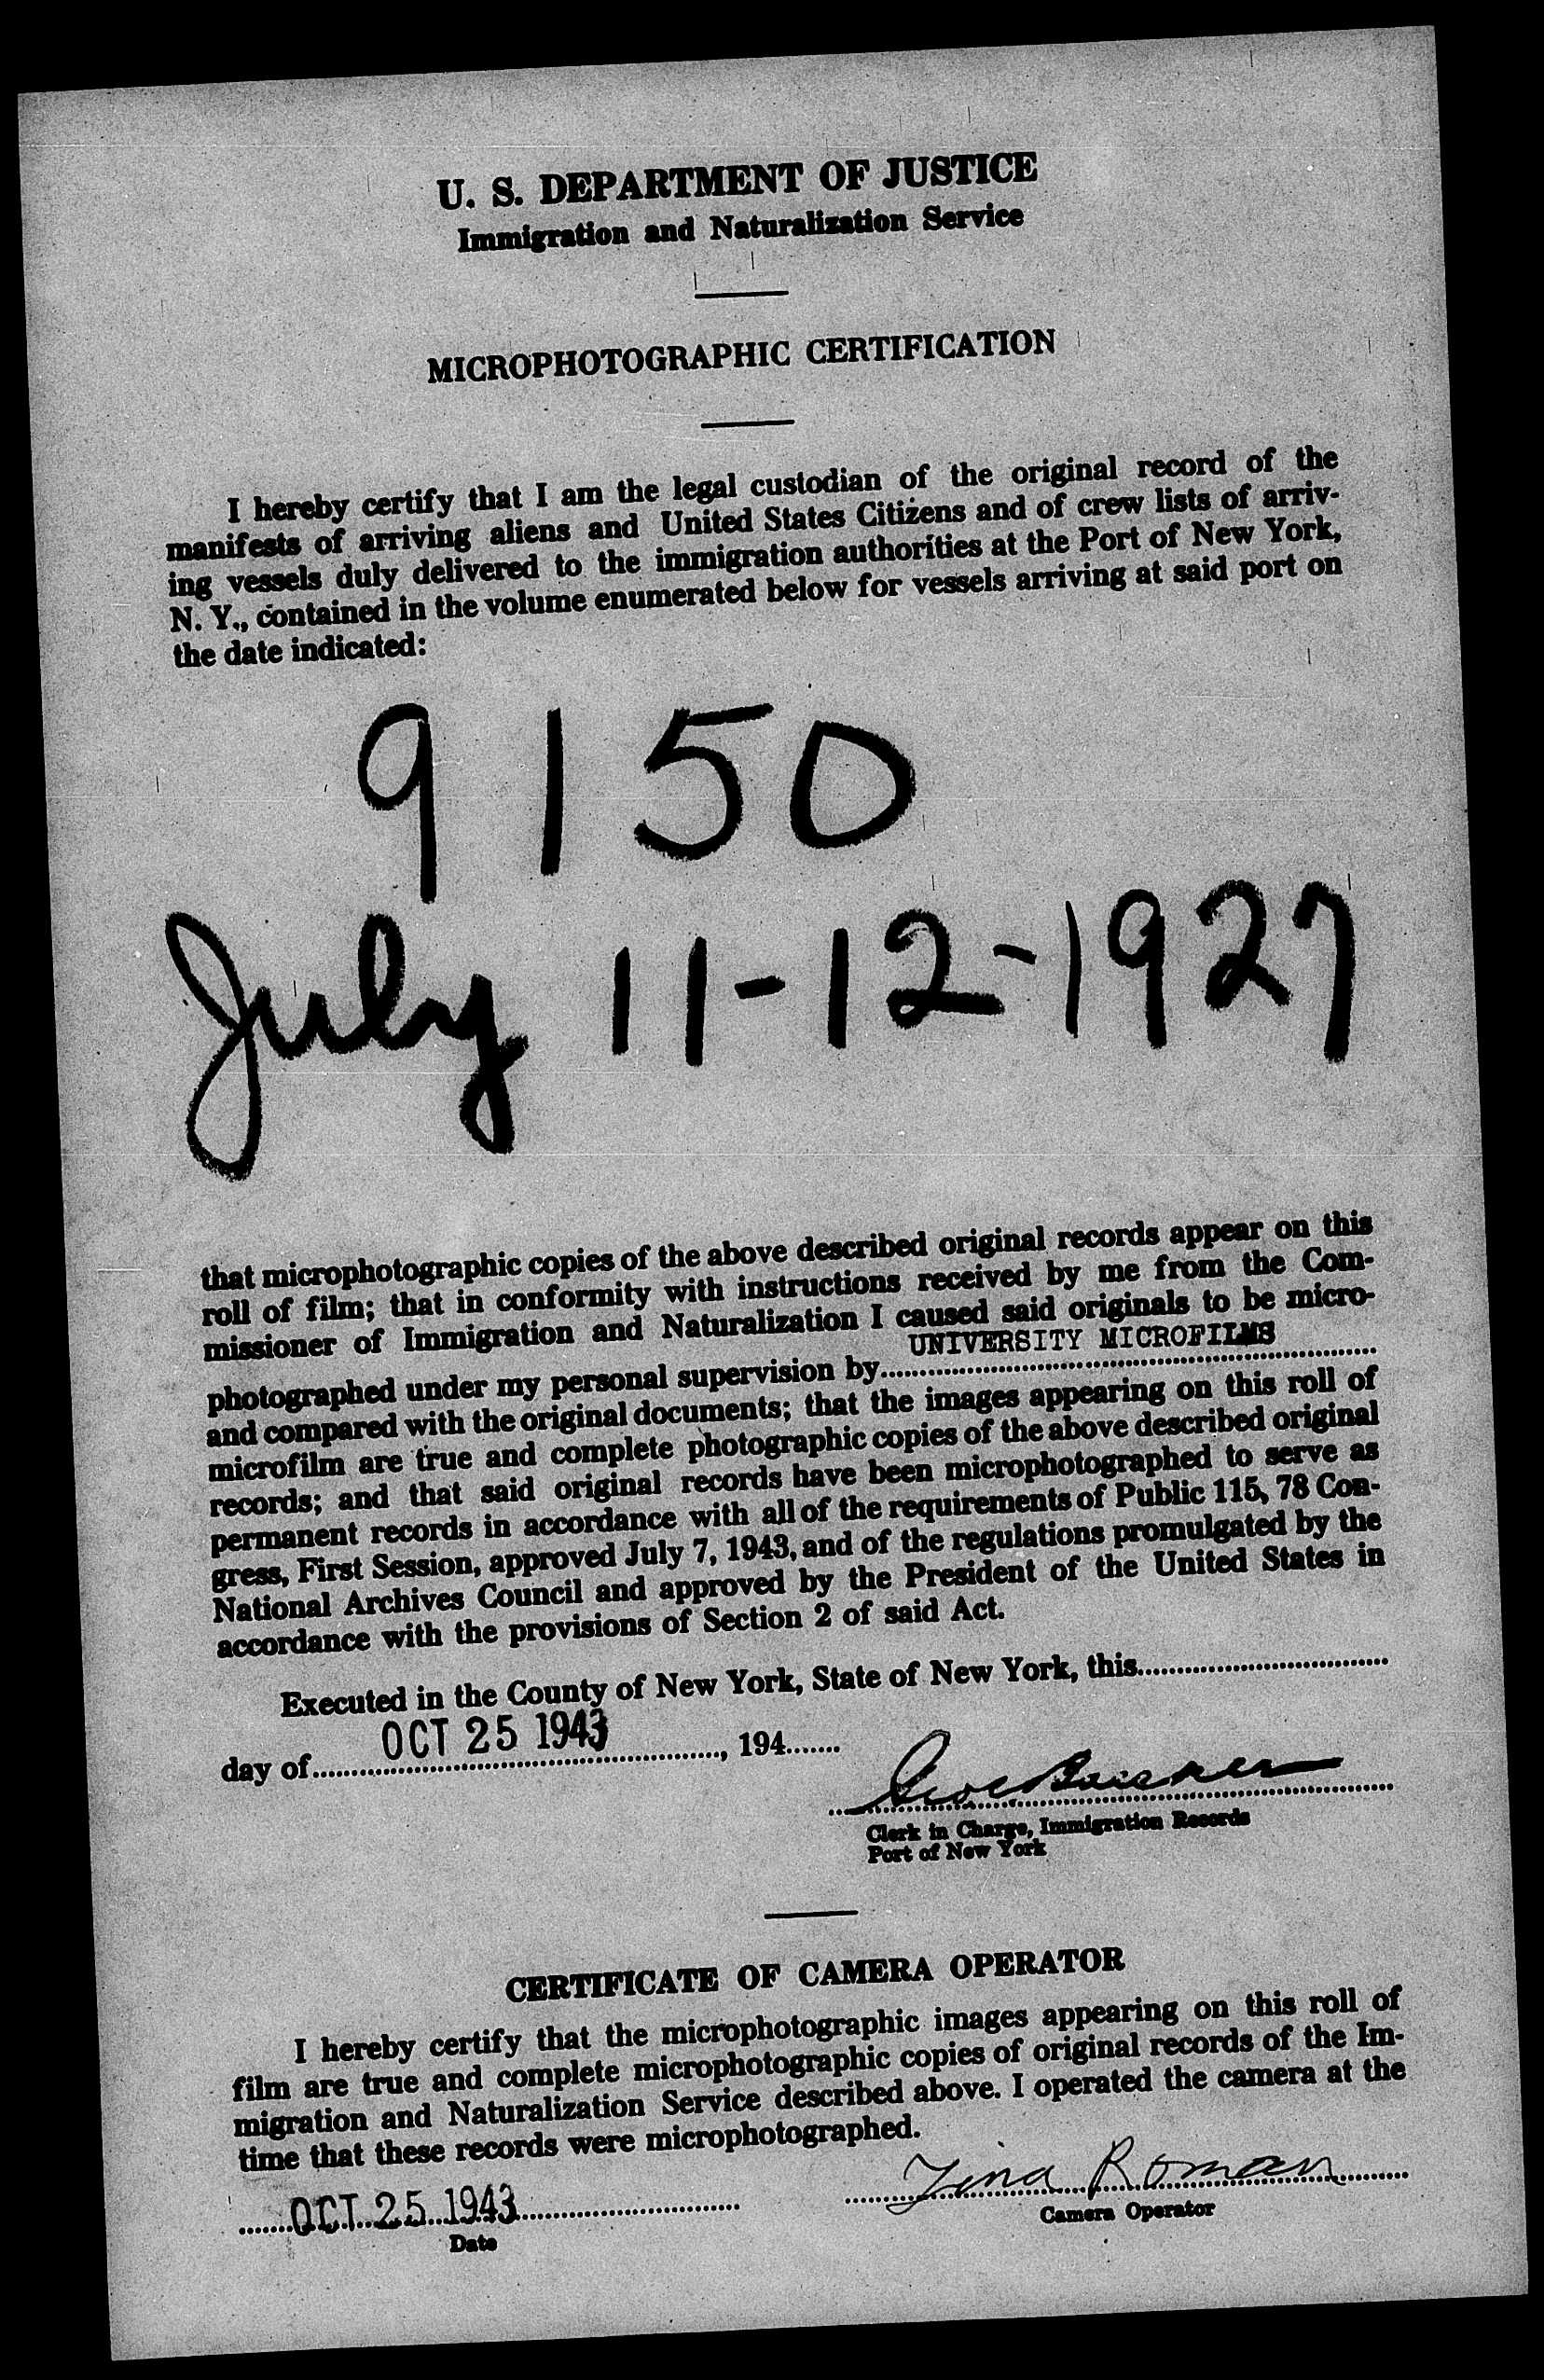 U. S. DEPARTMENT OF JUSTICE
Immigration and Naturalization Service
MICROPHOTOGRAPHIC CERTIFICATION
I hereby certify that I am the legal custodian of the original record of the
manifests of arriving aliens and United States Citizens and of crew lists of arriv-
ing vessels duly delivered to the immigration authorities at the Port of New York,
N. Y., contained in the volume enumerated below for vessels arriving at said port on
the date indicated:
9150
July 11-12-1927
that microphotographic copies of the above described original records appear on this
roll of film; that in conformity with instructions received by me from the Com-
missioner of Immigration and Naturalization I caused said originals to be micro-
UNIVERSITY MICROFILMS
photographed under my personal supervision by
and compared with the original documents; that the images appearing on this roll of
microfilm are true and complete photographic copies of the above described original
records; and that said original records have been microphotographed to serve as
permanent records in accordance with all of the requirements of Public 115, 78 Con-
gress, First Session, approved July 7, 1943, and of the regulations promulgated by the
National Archives Council and approved by the President of the United States in
accordance with the provisions of Section 2 of said Act.
Executed in the County of New York, State of New York, this
day of OCT 25 1943, 194
Clerk in Charge, Immigration Records
Port of New York
CERTIFICATE OF CAMERA OPERATOR
I hereby certify that the microphotographic images appearing on this roll of
film are true and complete microphotographic copies of original records of the Im-
migration and Naturalization Service described above. I operated the camera at the
time that these records were microphotographed.
OCT 25 1943 Roman
Date Camera Operator